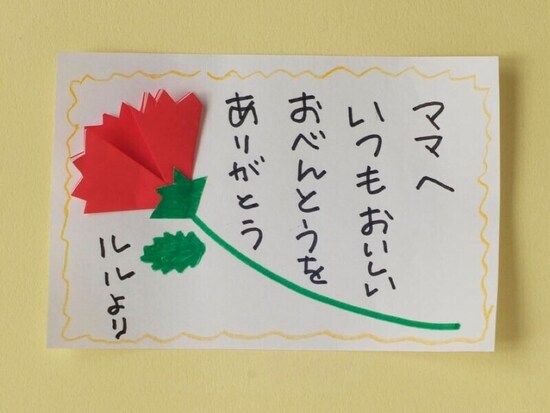 ママへ
いつもおいしい
おべんとうを
ありがとう
ルルより